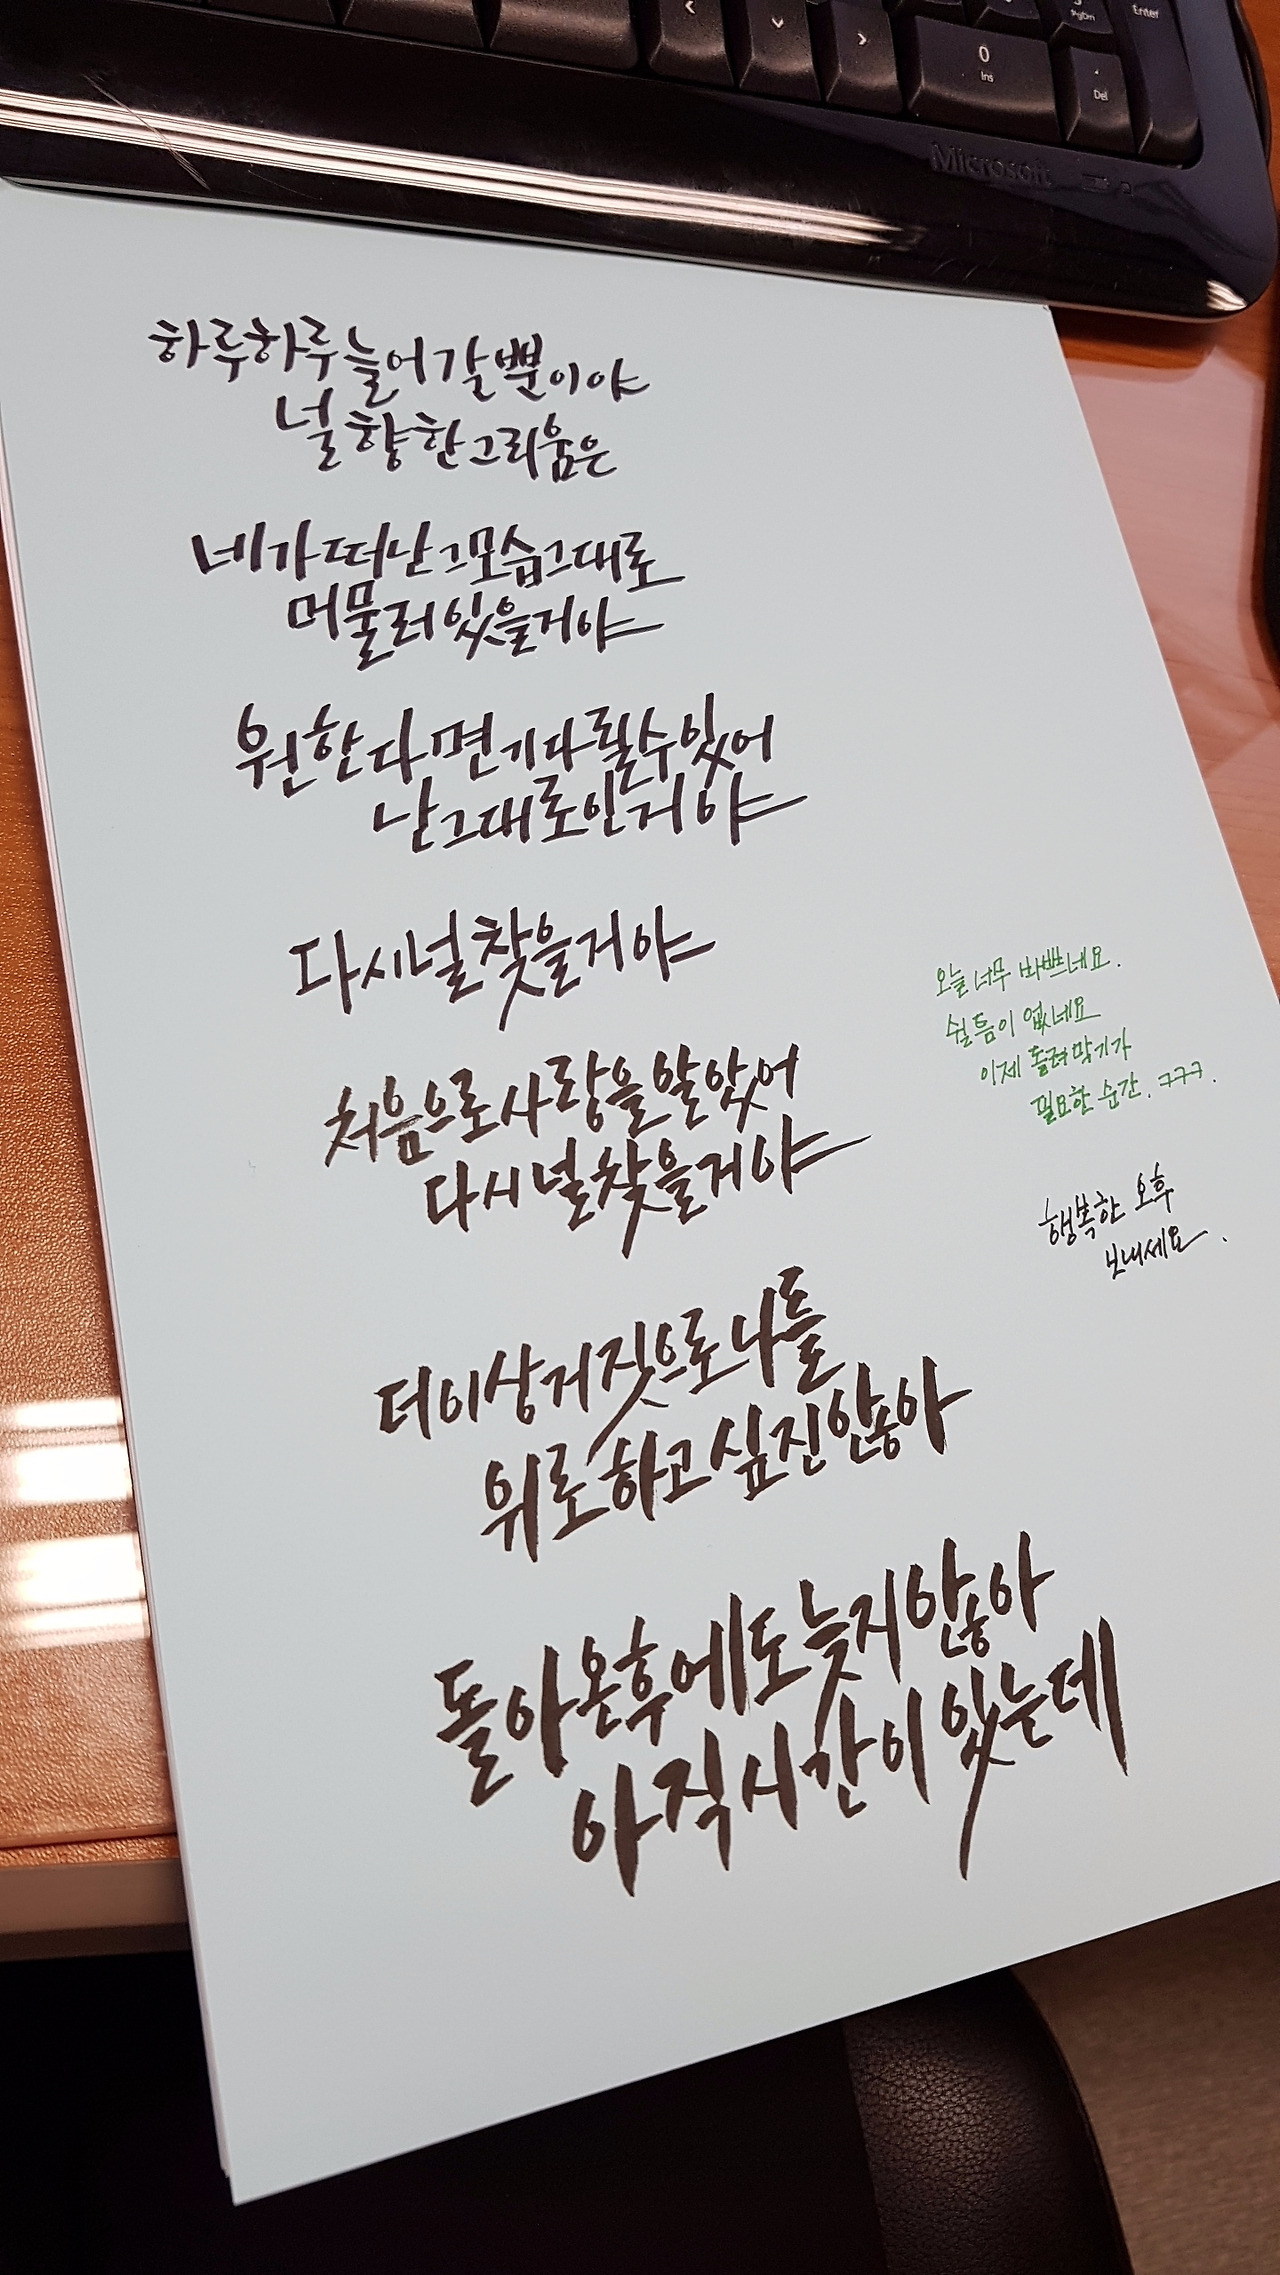 Enter
PgDn
0
Ins
Del
Microsoft
하루하루 늘어갈 뿐이야
널 향한 그리움은
네가 떠난 그 모습 그대로
머물러 있을거야
원한다면 기다릴 수 있어
난 그대로인거야
다시 널 찾을거야
처음으로 사랑을 알았어
다시 널 찾을거야
더이상 거짓으로 나를
위로하고 싶진 않아
돌아온 후에도 늦지 않아
아직 시간이 있는데
오늘 너무 바쁘네요.
쉴 틈이 없네요
이제 돌려막기가
필요한 순간. ㅋㅋㅋ.
행복한 오후
보내세요.